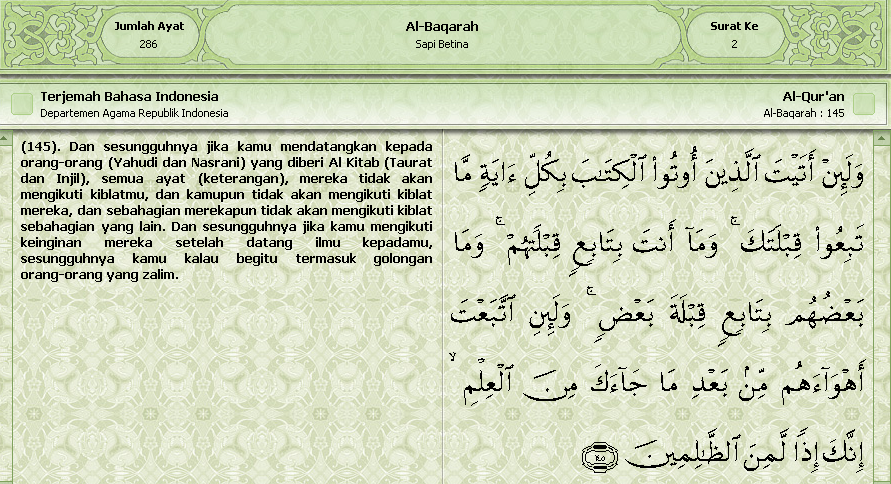 Jumlah Ayat
286
Al-Baqarah
Sapi Betina
Surat Ke
2
Terjemah Bahasa Indonesia
Departemen Agama Republik Indonesia
Al-Qur'an
Al-Baqarah : 145
(145). Dan sesungguhnya jika kamu mendatangkan kepada
orang-orang (Yahudi dan Nasrani) yang diberi Al Kitab (Taurat
dan Injil), semua ayat (keterangan), mereka tidak akan
mengikuti kiblatmu, dan kamupun tidak akan mengikuti kiblat
mereka, dan sebahagian merekapun tidak akan mengikuti kiblat
sebahagian yang lain. Dan sesungguhnya jika kamu mengikuti
keinginan mereka setelah datang ilmu kepadamu,
sesungguhnya kamu kalau begitu termasuk golongan
orang-orang yang zalim.
وَلَئِنْ أَتَيْتَ ٱلَّذِينَ أُوتُوا۟ ٱلْكِتَـٰبَ بِكُلِّ ءَايَةٍ مَّا
تَبِعُوا۟ قِبْلَتَكَ ۚ وَمَآ أَنتَ بِتَابِعٍ قِبْلَتَهُمْ ۚ وَمَا
بَعْضُهُم بِتَابِعٍ قِبْلَةَ بَعْضٍ ۚ وَلَئِنِ ٱتَّبَعْتَ
أَهْوَآءَهُم مِّنۢ بَعْدِ مَا جَآءَكَ مِنَ ٱلْعِلْمِ ۙ
إِنَّكَ إِذًا لَّمِنَ ٱلظَّـٰلِمِينَ ١٤٥